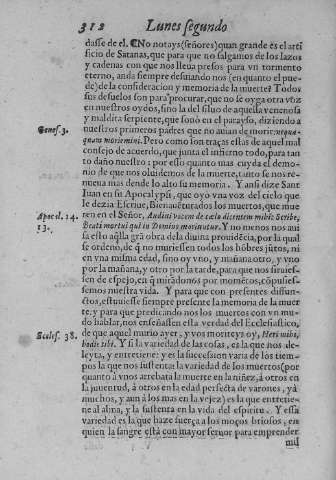 312 Lunes segundo
dasse de el. ¶No notays (señores) quan grande és el arti
ficio de Satanas, que para que no salgamos de los lazos
y cadenas con que nos lleua presos para vn tormento
eterno, anda siempre desuiando nos (en quanto el pue-
de) de la consideracion y memoria de la muerte? Todos
sus desuelos son para procurar, que no se oyga otra voz
en nuestros oydos, sino la del siluo de aquessa venenosa
y maldita serpiente, que sonò en el parayso, diziendo a
Genes. 3. nuestros primeros padres que no auian de morir: nequa-
quam moriemini. Pero como las traças estas de aquel mal
consejo de acuerdo, que junta el infierno todo, para tan
to daño nuestro: por esso quanto mas cuyda el demo-
nio de que nos oluidemos de la muerte, tanto se nos re-
mueua mas dende lo alto su memoria. Y ansi dize Sant
Iuan en su Apocalyps, que oyo vna voz del cielo que
le dezia Escriue, Bienauẽturados los muertos, que mue
Apocal. 14. ren en el Señor, Audiui vocem de cælo dicentem mihi: Scribe,
13. Beati mortui qui in Domino moriuntur. Y no menos nos aui
sa esto aquella gran obra dela diuina prouidẽcia, por la qual
se ordenò, de q̃ no muriessen todos los hõbres jũtos, ni
en vna misma edad, sino oy vno, y mañana otro, y vno
por la mañana, y otro por la tarde, para que nos siruies-
sen de espejo, en q̃ miradonos por momẽtos, cõpusies-
semos nuestra vida. Y para que con presentes difun-
ctos, estuuiesse siempre presente la memoria de la muer
te, y para que predicando nos los muertos con vn mu-
do hablar, nos enseñassen esta verdad del Ecclesiastico,
Eccles. 38. de que aquel murio ayer, y vos morireys oy, Heri mihi,
hodie tibi. Y si la variedad de las cosas, es la que nos de-
leyta, y entretiene: y es la succession varia de los tiem-
pos la que nos sustenta la variedad de los muertos (por
quanto à vnos arrebata la muerte en la niñez, à otros en
la juuentud, à otros en la edad perfecta de varones, yà
muchos, y aun à los mas en la vejez) es la que entretie-
ne al alma, y la sustenta en la vida del espiritu. Y essa
variedad es la que haze fuerça a los moços briosos, en
quien la sangre està con mayor señor para emprender
mil